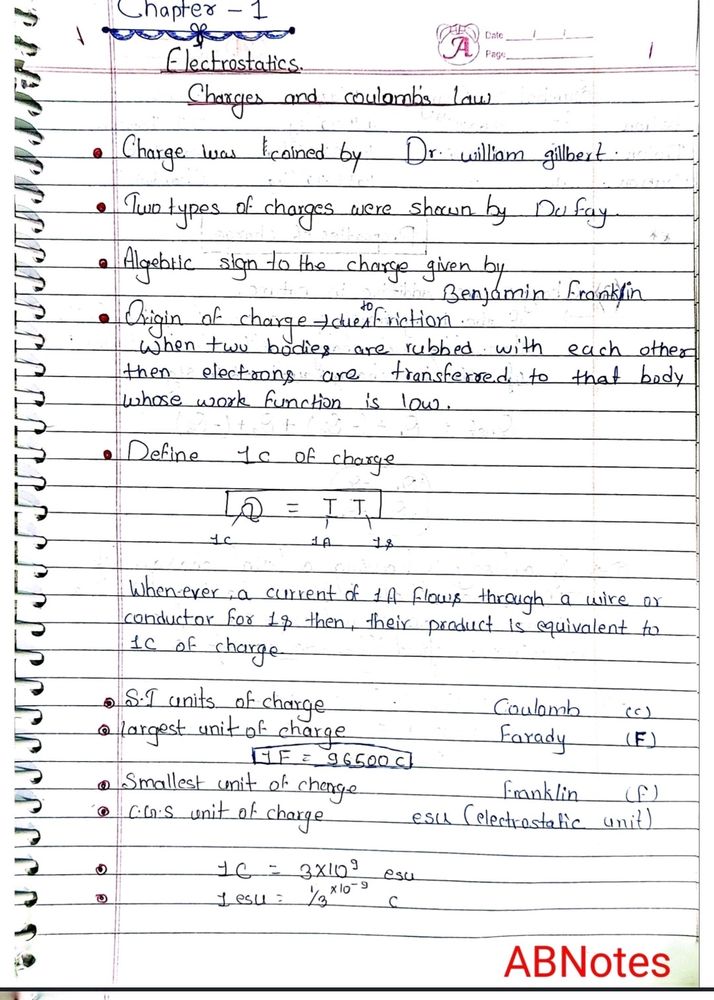 Chapter - 1
1
A
Date
Page
1
Electrostatics.
Charges and coulomb's law
Charge was coined by Dr. william gillbert.
Two types of charges were shown by Du fay.
Algebric sign to the charge given by
Benjamin Franklin
Origin of charge → due to friction.
When two bodies are rubbed with each other
then electrons are transferred to that body
whose work function is low.
Define 1C of charge
Q = I T
1C 1A 1s
When-ever, a current of 1A flows through a wire or
conductor for 1s then, their product is equivalent to
1C of charge.
S.I units of charge Coulomb (C)
largest unit of charge Farady (F)
1F = 96500C
Smallest unit of charge Franklin (F)
C.G.S unit of charge esu (electrostatic unit)
1C = 3×10⁹ esu
1 esu = 1/3 ×10⁻⁹ C
ABNotes